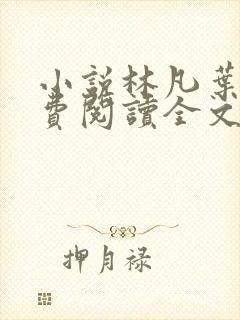 小說林凡葉
費閱讀全文
押月禄